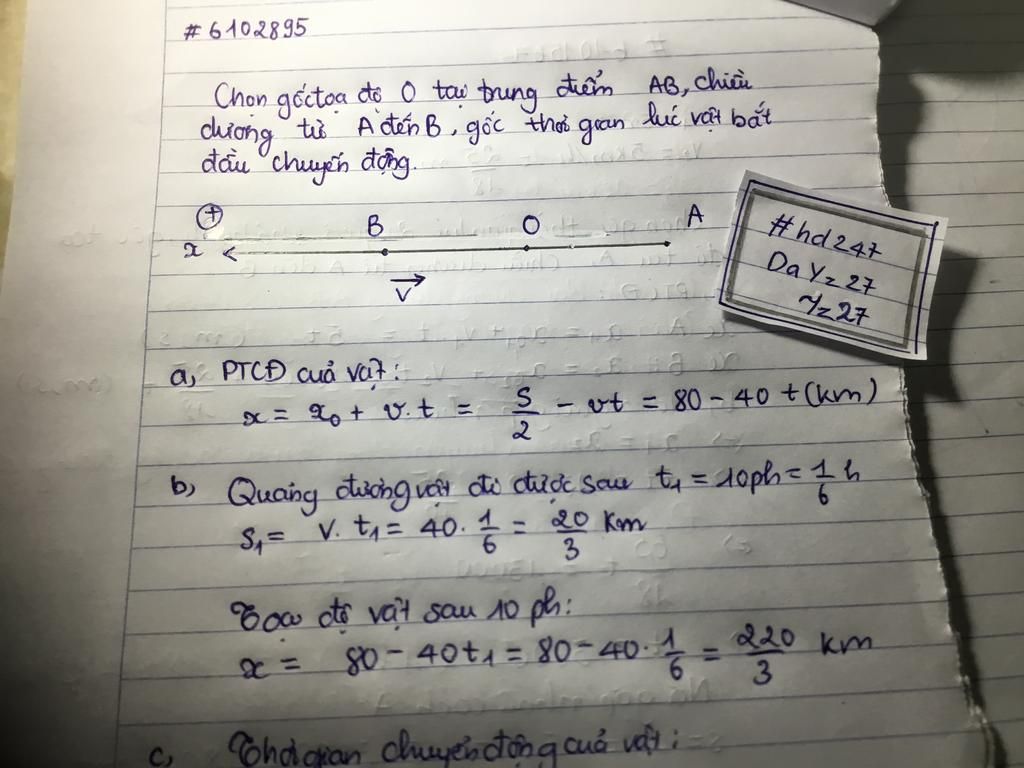 #6102895
Chọn gốc tọa độ O tại trung điểm AB, chiều
dương từ A đến B, gốc thời gian lúc vật bắt
đầu chuyển động.
+
x B O A
v
#hd247
Day=27
7=27
a, PTCĐ của vật:
x = x₀ + v.t = S/2 - vt = 80 - 40t (km)
b) Quãng đường vật đi được sau t₁ = 10ph = 1/6 h
S₁ = v.t₁ = 40. 1/6 = 20/3 km
Tọa độ vật sau 10 ph:
x = 80 - 40t₁ = 80 - 40. 1/6 = 220/3 km
c, Thời gian chuyển động của vật: